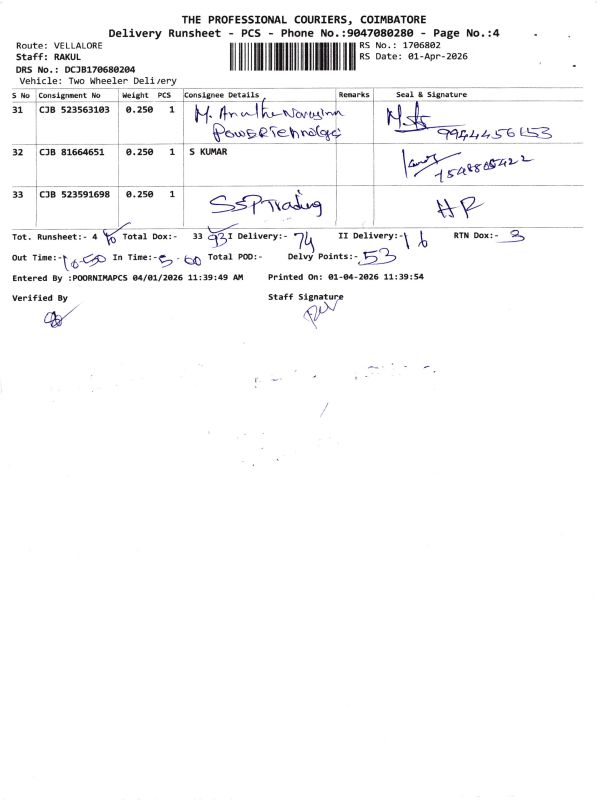 THE PROFESSIONAL COURIERS, COIMBATORE
Delivery Runsheet - PCS - Phone No.:9047080280 - Page No.:4
Route: VELLALORE RS No.: 1706802
Staff: RAKUL RS Date: 01-Apr-2026
DRS No.: DCJB170680204
Vehicle: Two Wheeler Delivery
S No Consignment No Weight PCS Consignee Details Remarks Seal & Signature
31 CJB 523563103 0.250 1 M.
9944456153
32 CJB 81664651 0.250 1 S KUMAR
33 CJB 523591698 0.250 1 SSP Trading HR
Tot. Runsheet:- 4 Total Dox:- 33 93 I Delivery:- 74 II Delivery:- 16 RTN Dox:- 3
Out Time:- 10-50 In Time:- 5-00 Total POD:- Delvy Points:- 53
Entered By :POORNIMAPCS 04/01/2026 11:39:49 AM Printed On: 01-04-2026 11:39:54
Verified By Staff Signature